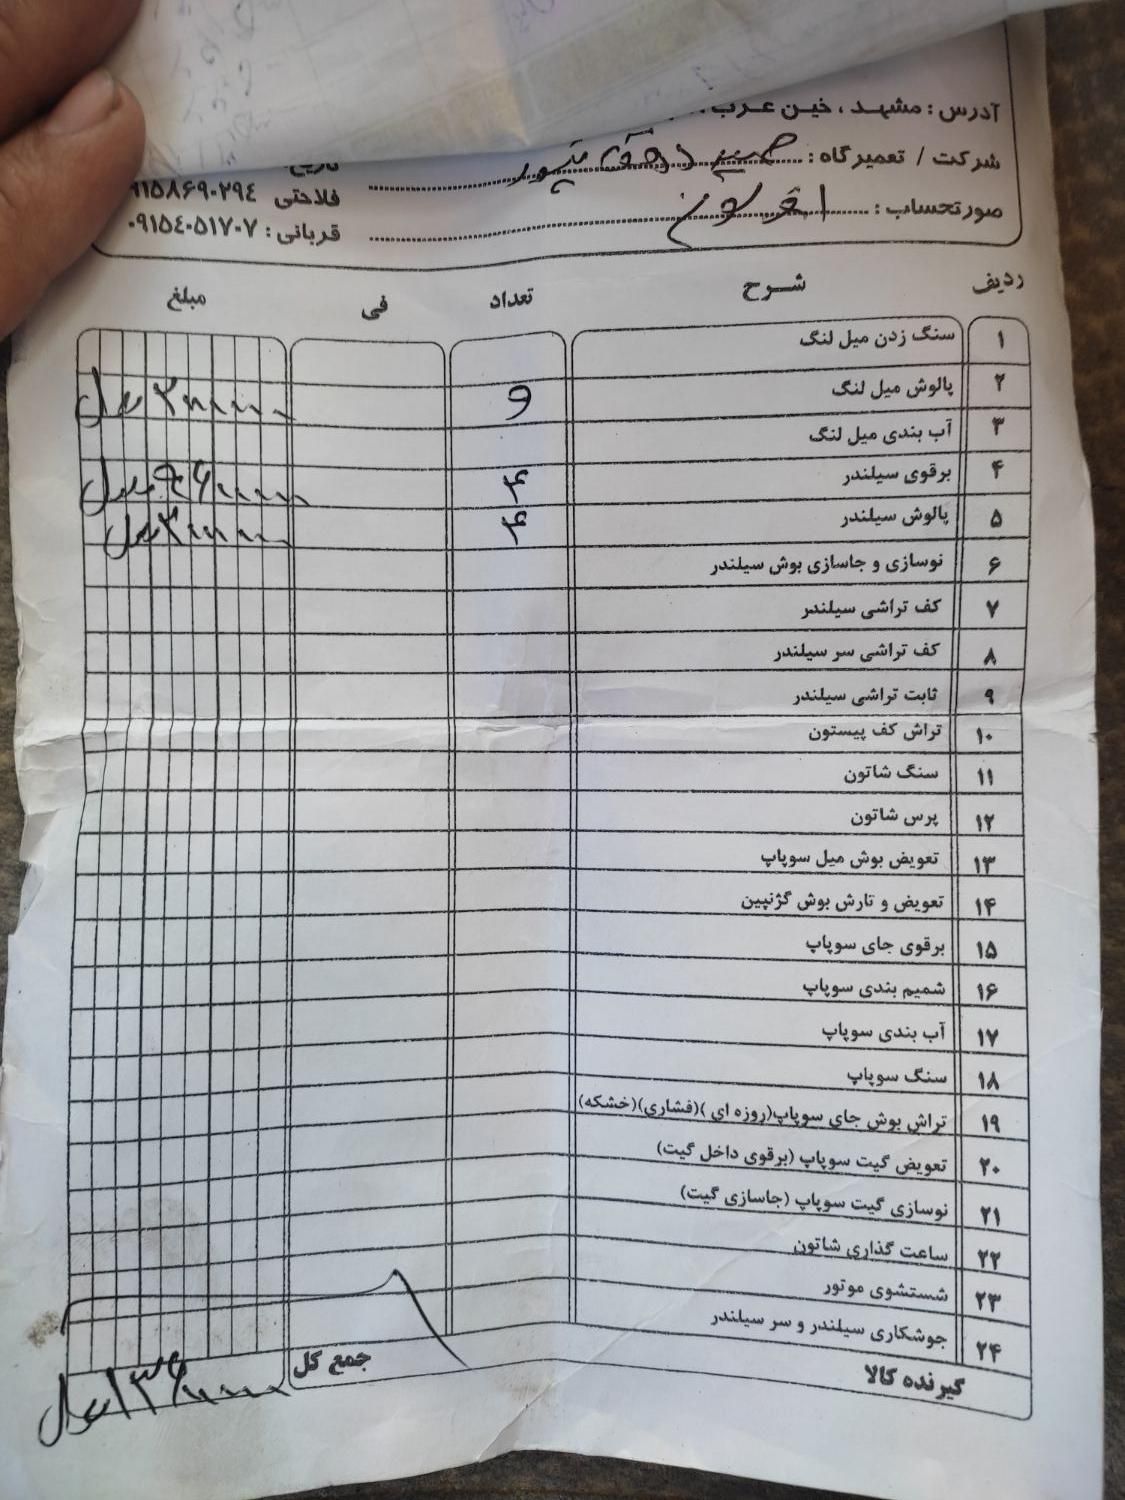 آدرس : مشهد ، خین عرب
شرکت / تعمیرگاه :
تاریخ
فلاحتی ۹۱۵۸۶۹۰۲۹٤
صورتحساب :
قربانی : ۰۹۱۵٤۰۵۱۷۰۷
ردیف شــرح تعداد فی مبلغ
۱ سنگ زدن میل لنگ
۲ پالوش میل لنگ ۳ ریال
۳ آب بندی میل لنگ
۴ برقوی سیلندر ۴ ریال
۵ پالوش سیلندر ۴ ۳ ریال
۶ نوسازی و جاسازی بوش سیلندر
۷ کف تراشی سیلندر
۸ کف تراشی سر سیلندر
۹ ثابت تراشی سیلندر
۱۰ تراش کف پیستون
۱۱ سنگ شاتون
۱۲ پرس شاتون
۱۳ تعویض بوش میل سوپاپ
۱۴ تعویض و تارش بوش گژنپین
۱۵ برقوی جای سوپاپ
۱۶ شمیم بندی سوپاپ
۱۷ آب بندی سوپاپ
۱۸ سنگ سوپاپ
۱۹ تراش بوش جای سوپاپ(روزه ای )(فشاری)(خشکه)
۲۰ تعویض گیت سوپاپ (برقوی داخل گیت)
۲۱ نوسازی گیت سوپاپ (جاسازی گیت)
۲۲ ساعت گذاری شاتون
۲۳ شستشوی موتور
۲۴ جوشکاری سیلندر و سر سیلندر
گیرنده کالا جمع کل ریال